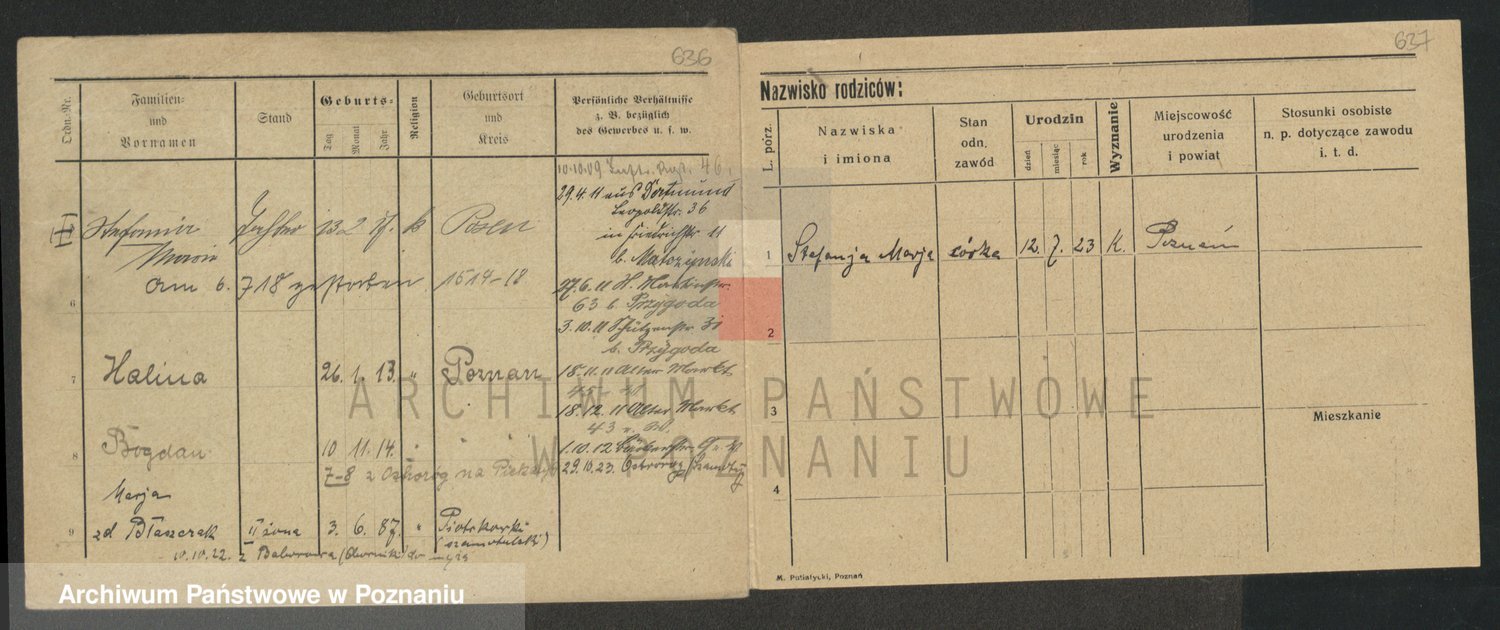 636
Ordn.-Nr.
Familien-
und
Vornamen
Stand
Geburts-
Tag
Monat
Jahr
Religion
Geburtsort
und
Kreis
Persönliche Verhältnisse
z. B. bezüglich
des Gewerbes u. s. w.
10.10.09 46.
29.4.11 aus Dortmund
Leopoldstr. 36
in Friedrichstr. 11
b. Matczynski
Stefania Tochter 13 2 k Posen
Maria
am 6. 7 18 gestorben 1614-18
27.6.11 H.
6
63 b. Przygoda
3.10.11 Schützenstr 31
b. Przygoda
7 Halina 26. 1. 13. " Poznan
18.11.11 Alter Markt
18.12.11 Alter Markt
43
8 Bogdan 10 11. 14. "
1.10.12
7-8 z Ostroróg na
29.10.23. Ostroróg
Marja
9 zd Błaszczak II żona 3. 6. 87. " Piotrkowski
(szamotulski)
10.10.22. z
627
Nazwisko rodziców:
L. porz.
Nazwiska
i imiona
Stan
odn.
zawód
Urodzin
dzień
miesiąc
rok
Wyznanie
Miejscowość
urodzenia
i powiat
Stosunki osobiste
n. p. dotyczące zawodu
i. t. d.
1 Stefanja Marja córka 12. 7. 23 K. Poznań
2
3
Mieszkanie
4
M. Putiatycki, Poznań
ARCHIWUM PAŃSTWOWE
W POZNANIU
Archiwum Państwowe w Poznaniu